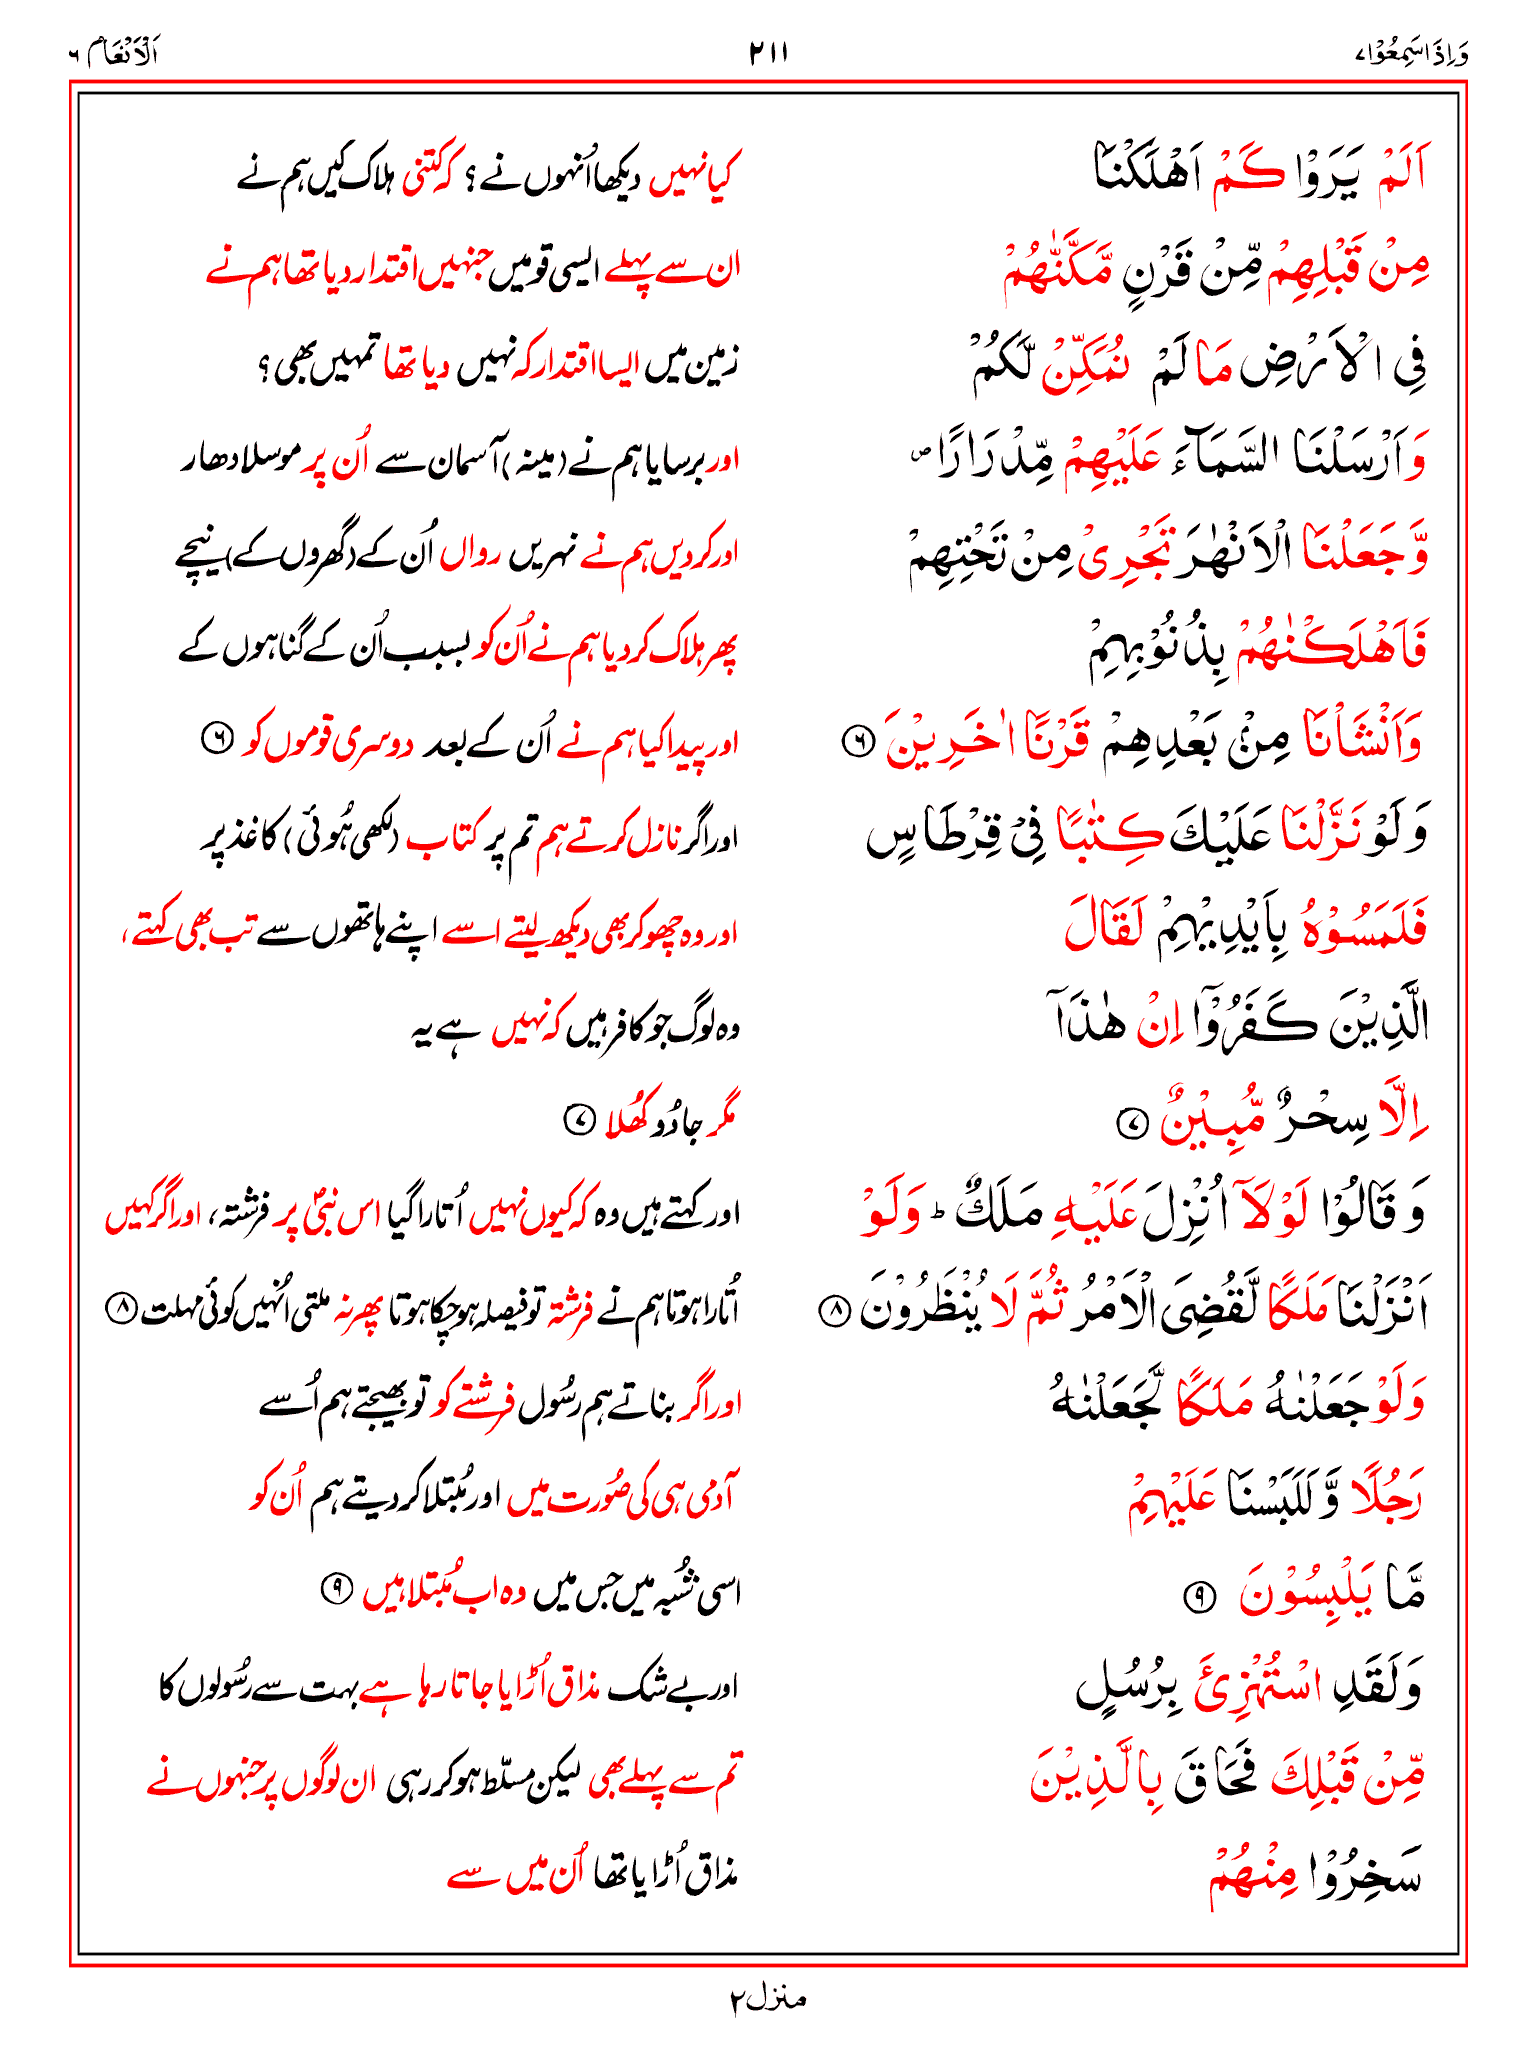 وَاِذَا سَمِعُوْا ۷ ۲۱۱ اَلْاَنْعَام ۶
اَلَمْ يَرَوْا كَمْ اَهْلَكْنَا کیا نہیں دیکھا اُنہوں نے؟ کہ کتنی ہلاک کیں ہم نے
مِنْ قَبْلِهِمْ مِّنْ قَرْنٍ مَّكَّنّٰهُمْ ان سے پہلے ایسی قومیں جنہیں اقتدار دیا تھا ہم نے
فِي الْاَرْضِ مَا لَمْ نُمَكِّنْ لَّكُمْ زمین میں ایسا اقتدار کہ نہیں دیا تھا تمہیں بھی؟
وَاَرْسَلْنَا السَّمَآءَ عَلَيْهِمْ مِّدْرَارًا ص اور برسایا ہم نے (مینہ) آسمان سے اُن پر موسلا دھار
وَّجَعَلْنَا الْاَنْهٰرَ تَجْرِيْ مِنْ تَحْتِهِمْ اور کر دیں ہم نے نہریں رواں اُن کے (گھروں کے) نیچے
فَاَهْلَكْنٰهُمْ بِذُنُوْبِهِمْ پھر ہلاک کر دیا ہم نے اُن کو بسبب اُن کے گناہوں کے
وَاَنْشَاْنَا مِنْۢ بَعْدِهِمْ قَرْنًا اٰخَرِيْنَ ۶ اور پیدا کیا ہم نے اُن کے بعد دوسری قوموں کو ۶
وَلَوْ نَزَّلْنَا عَلَيْكَ كِتٰبًا فِيْ قِرْطَاسٍ اور اگر نازل کرتے ہم تم پر کتاب (لکھی ہُوئی) کاغذ پر
فَلَمَسُوْهُ بِاَيْدِيْهِمْ لَقَالَ اور وہ چھو کر بھی دیکھ لیتے اسے اپنے ہاتھوں سے تب بھی کہتے،
الَّذِيْنَ كَفَرُوْٓا اِنْ هٰذَآ وہ لوگ جو کافر ہیں کہ نہیں ہے یہ
اِلَّا سِحْرٌ مُّبِيْنٌ ۷ مگر جادُو کھُلا ۷
وَقَالُوْا لَوْلَآ اُنْزِلَ عَلَيْهِ مَلَكٌ ط وَلَوْ اور کہتے ہیں وہ کہ کیوں نہیں اُتارا گیا اس نبیؐ پر فرشتہ، اور اگر کہیں
اَنْزَلْنَا مَلَكًا لَّقُضِيَ الْاَمْرُ ثُمَّ لَا يُنْظَرُوْنَ ۸ اُتارا ہوتا ہم نے فرشتہ تو فیصلہ ہو چکا ہوتا پھر نہ ملتی اُنہیں کوئی مہلت ۸
وَلَوْ جَعَلْنٰهُ مَلَكًا لَّجَعَلْنٰهُ اور اگر بناتے ہم رسُول فرشتے کو تو بھیجتے ہم اُسے
رَجُلًا وَّلَلَبَسْنَا عَلَيْهِمْ آدمی ہی کی صُورت میں اور مُبتلا کر دیتے ہم اُن کو
مَّا يَلْبِسُوْنَ ۹ اسی شُبہ میں جس میں وہ اب مُبتلا ہیں ۹
وَلَقَدِ اسْتُهْزِئَ بِرُسُلٍ اور بے شک مذاق اُڑایا جاتا رہا ہے بہت سے رسُولوں کا
مِّنْ قَبْلِكَ فَحَاقَ بِالَّذِيْنَ تم سے پہلے بھی لیکن مسلّط ہو کر رہی ان لوگوں پر جنہوں نے
سَخِرُوْا مِنْهُمْ مذاق اُڑایا تھا اُن میں سے
منزل ۲